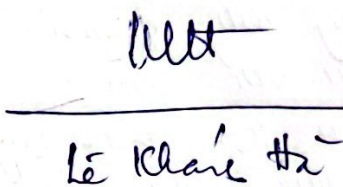 Lê Khánh Hà